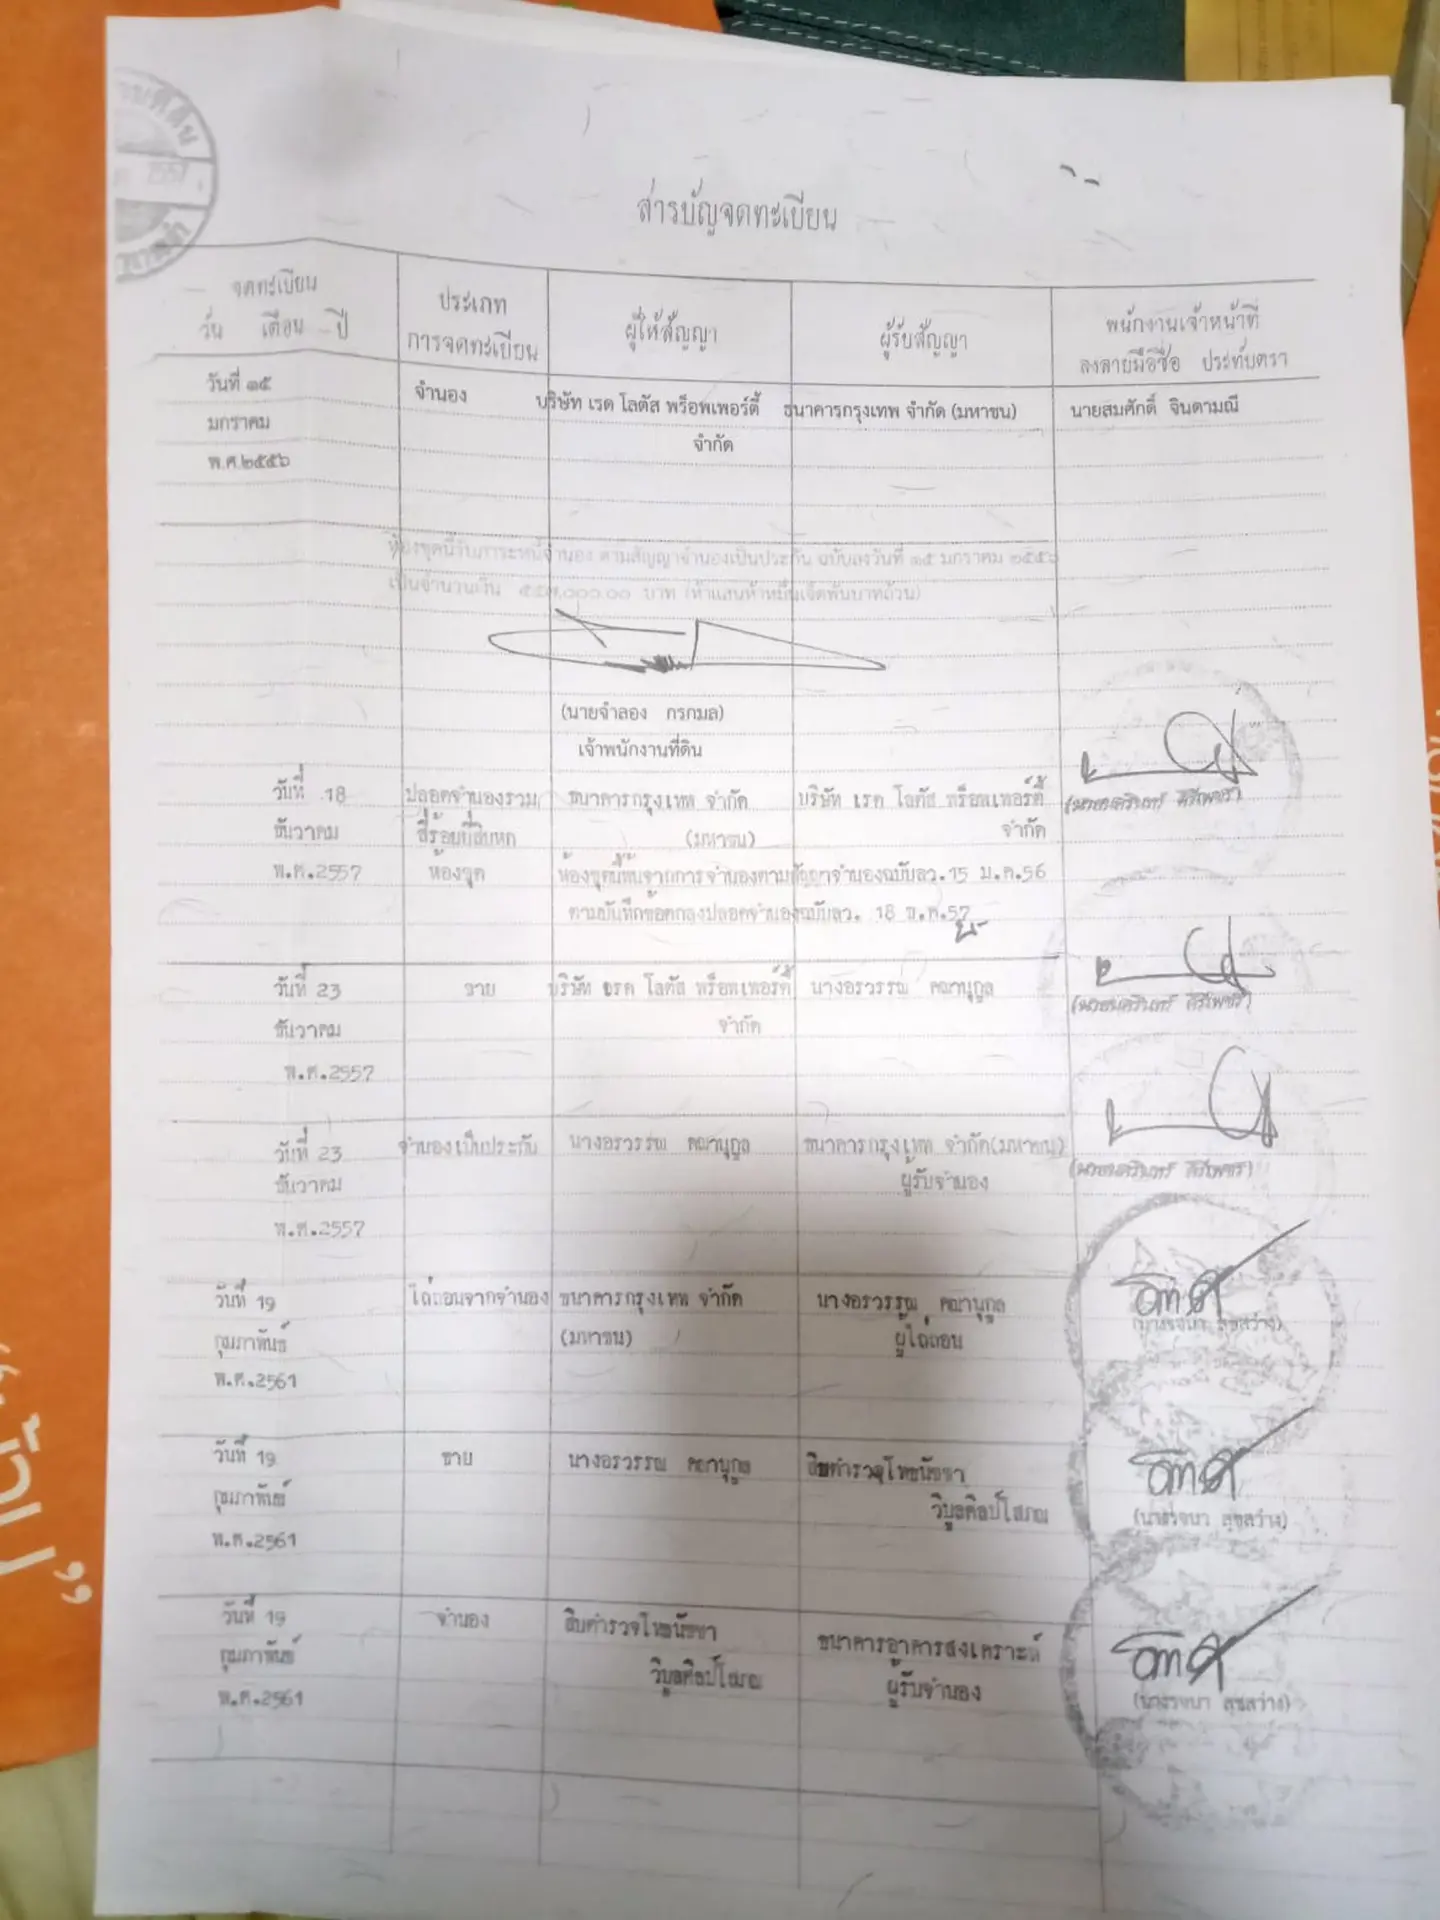 2557
สารบัญจดทะเบียน
จดทะเบียน
วัน เดือน ปี
ประเภท
การจดทะเบียน
ผู้ให้สัญญา
ผู้รับสัญญา
พนักงานเจ้าหน้าที่
ลงลายมือชื่อ ประทับตรา
วันที่ ๑๕ จำนอง บริษัท เรด โลตัส พร็อพเพอร์ตี้ ธนาคารกรุงเทพ จำกัด (มหาชน) นายสมศักดิ์ จินดามณี
มกราคม จำกัด
พ.ศ.๒๕๕๖
ห้องชุดนี้รับภาระหนี้จำนอง ตามสัญญาจำนองเป็นประกัน ฉบับลงวันที่ ๑๕ มกราคม ๒๕๕๖
เป็นจำนวนเงิน ๕๕๗,๐๐๐.๐๐ บาท (ห้าแสนห้าหมื่นเจ็ดพันบาทถ้วน)
(นายจำลอง กรกมล)
เจ้าพนักงานที่ดิน
วันที่ 18 ปลอดจำนองรวม ธนาคารกรุงเทพ จำกัด บริษัท เรด โลตัส พร็อพเพอร์ตี้
ธันวาคม สี่ร้อยยี่สิบหก (มหาชน) จำกัด
พ.ศ.2557 ห้องชุด ห้องชุดนี้พ้นจากการจำนองตามสัญญาจำนองฉบับลว.15 ม.ค.56
ตามบันทึกข้อตกลงปลอดจำนองฉบับลว. 18 ธ.ค.57
วันที่ 23 ขาย บริษัท เรด โลตัส พร็อพเพอร์ตี้ นางอรวรรณ คณานุกูล
ธันวาคม จำกัด
พ.ศ.2557
วันที่ 23 จำนองเป็นประกัน นางอรวรรณ คณานุกูล ธนาคารกรุงเทพ จำกัด(มหาชน)
ธันวาคม ผู้รับจำนอง
พ.ศ.2557
วันที่ 19 ไถ่ถอนจากจำนอง ธนาคารกรุงเทพ จำกัด นางอรวรรณ คณานุกูล (นางรจนา สุขสว่าง)
กุมภาพันธ์ (มหาชน) ผู้ไถ่ถอน
พ.ศ.2561
วันที่ 19 ขาย นางอรวรรณ คณานุกูล สิบตำรวจโทธนัชชา
กุมภาพันธ์ วิบูลศิลป์โสภณ (นางรจนา สุขสว่าง)
พ.ศ.2561
วันที่ 19 จำนอง สิบตำรวจโทธนัชชา ธนาคารอาคารสงเคราะห์
กุมภาพันธ์ วิบูลศิลป์โสภณ ผู้รับจำนอง (นางรจนา สุขสว่าง)
พ.ศ.2561